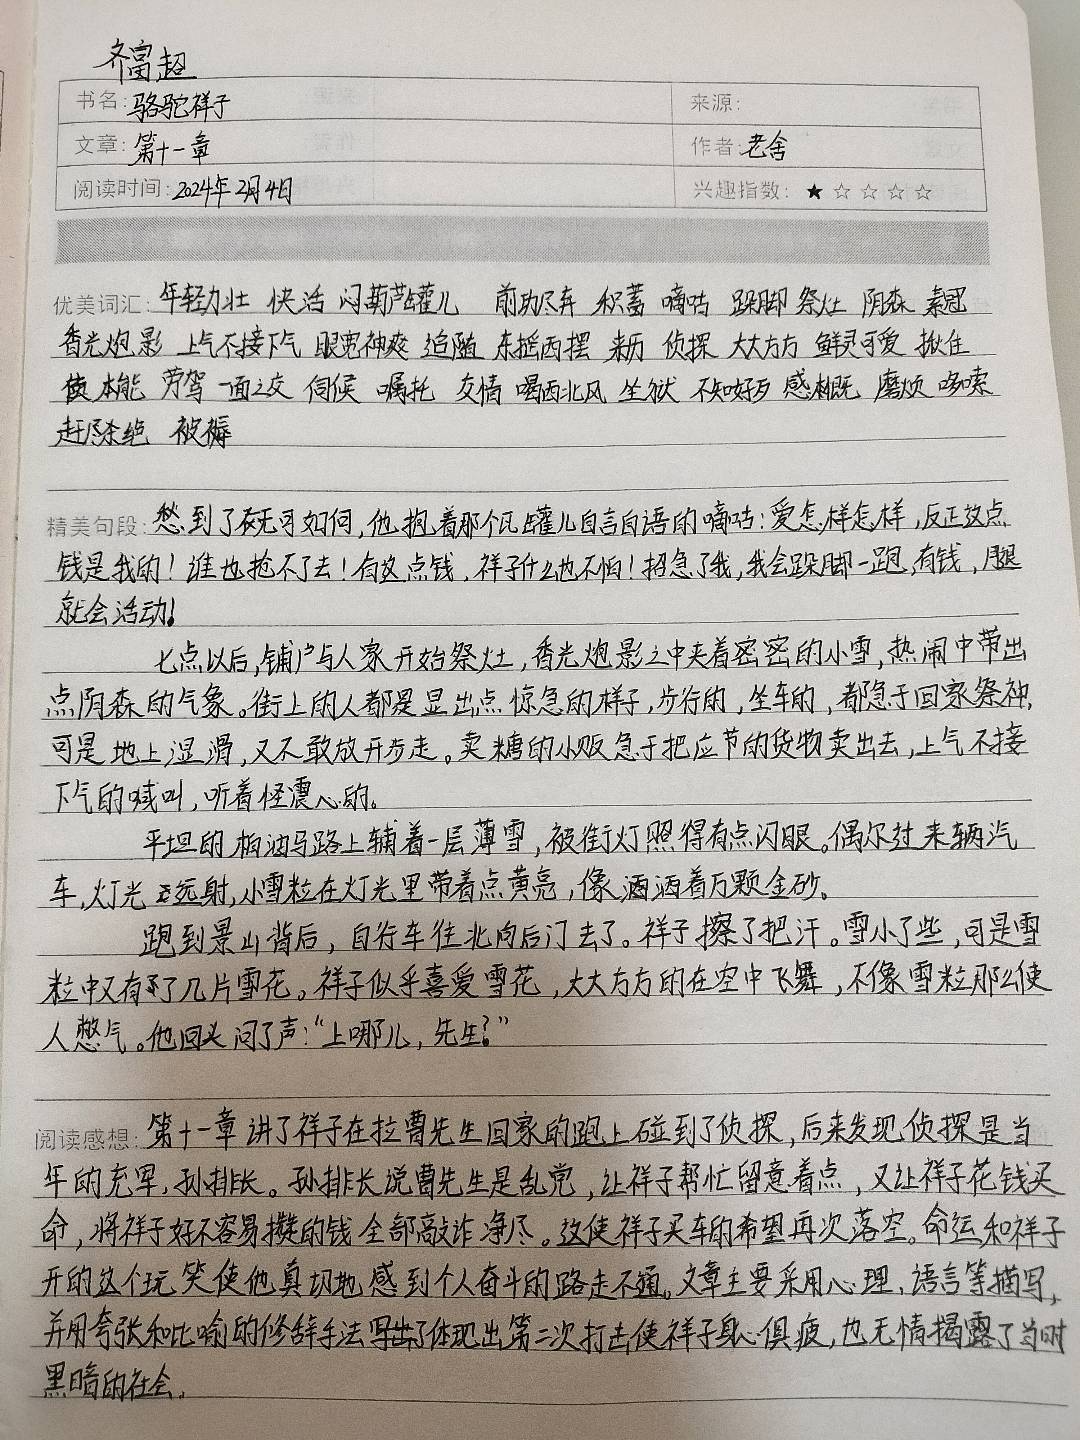 齐富超
书名: 骆驼祥子 来源:
文章: 第十一章 作者: 老舍
阅读时间: 2024年2月4日 兴趣指数: ★ ☆ ☆ ☆ ☆
优美词汇: 年轻力壮 快活 闷葫芦罐儿 前功尽弃 积蓄 嘀咕 跺脚 祭灶 阴森 素冠
香光炮影 上气不接下气 眼宽神爽 追随 东摇西摆 来历 侦探 大大方方 鲜灵可爱 揪住
本能 劳驾 一面之交 伺候 嘱托 交情 喝西北风 坐狱 不知好歹 感慨 磨烦 哆嗦
赶尽杀绝 被褥
精美句段: 愁到了无可如何,他抱着那个瓦罐儿自言自语的嘀咕:爱怎样怎样,反正这点
钱是我的!谁也抢不了去!有这点钱,祥子什么也不怕!招急了我,我会跺脚一跑,有钱,腿
就会活动!
七点以后,铺户与人家开始祭灶,香光炮影之中夹着密密的小雪,热闹中带出
点阴森的气象。街上的人都是显出点惊急的样子,步行的,坐车的,都急于回家祭神,
可是地上湿滑,又不敢放开步走。卖糖的小贩急于把应节的货物卖出去,上气不接
下气的喊叫,听着怪震心的。
平坦的柏油马路上铺着一层薄雪,被街灯照得有点闪眼。偶尔过来辆汽
车,灯光远射,小雪粒在灯光里带着点黄亮,像洒洒着万颗金砂。
跑到景山背后,自行车往北向后门去了。祥子擦了把汗。雪小了些,可是雪
粒中又有了几片雪花。祥子似乎喜爱雪花,大大方方的在空中飞舞,不像雪粒那么使
人憋气。他回头问了声:“上哪儿,先生?”
阅读感想: 第十一章讲了祥子在拉曹先生回家的跑上碰到了侦探,后来发现侦探是当
年的充军,孙排长。孙排长说曹先生是乱党,让祥子帮忙留意着点,又让祥子花钱买
命,将祥子好不容易攒的钱全部敲诈净尽。这使祥子买车的希望再次落空。命运和祥子
开的这个玩笑使他真切地感到个人奋斗的路走不通。文章主要采用心理、语言等描写,
并用夸张和比喻的修辞手法写出了体现出第二次打击使祥子身心俱疲,也无情揭露了当时
黑暗的社会。